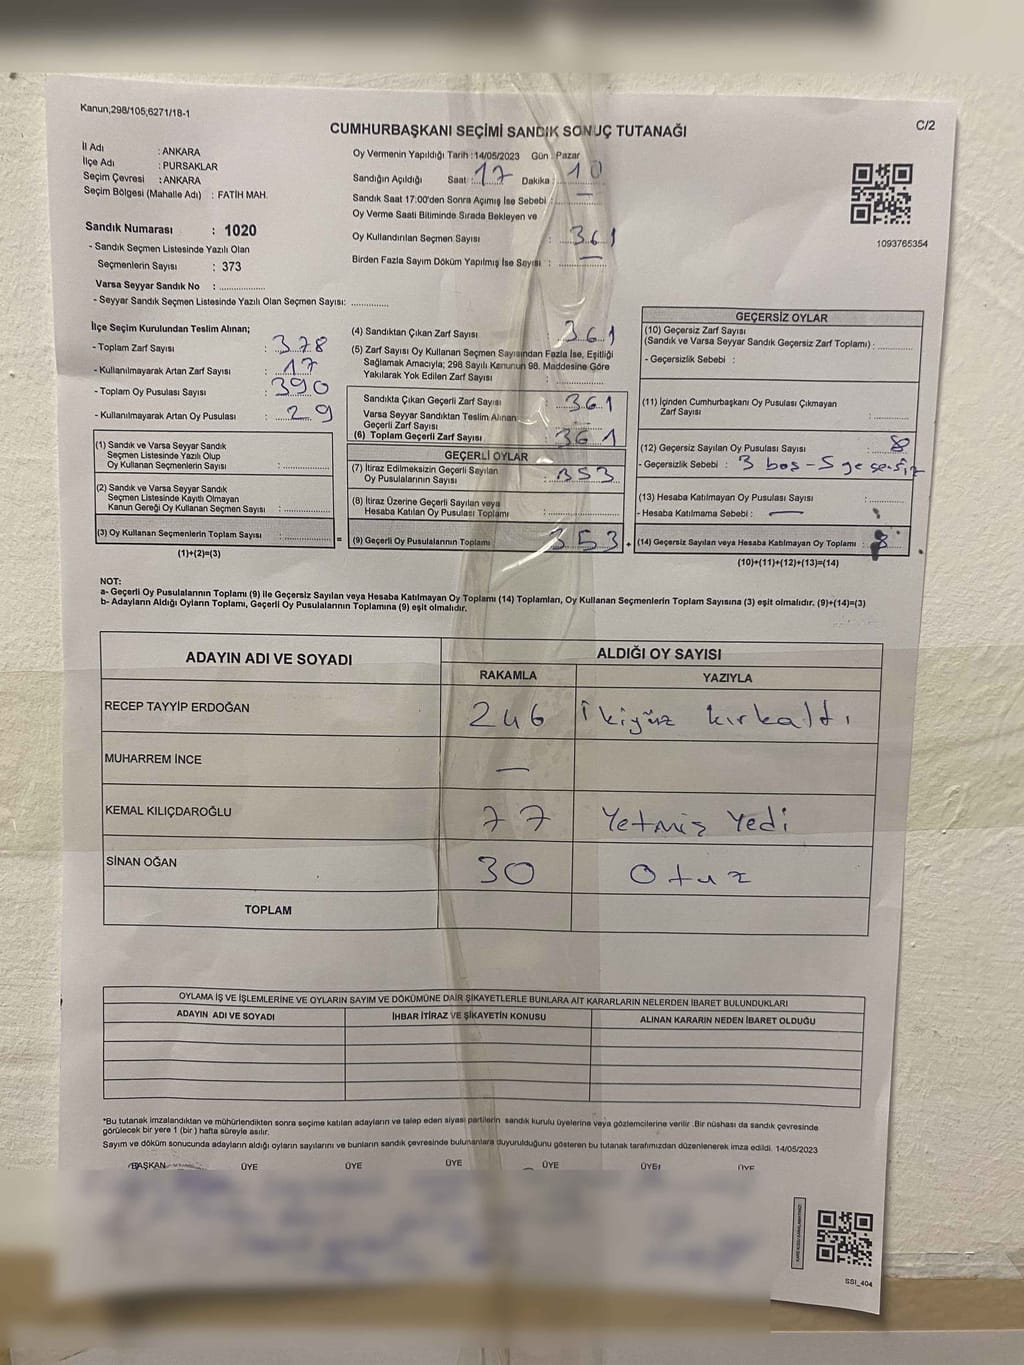 Kanun;298/105;6271/18-1
C/2
CUMHURBAŞKANI SEÇİMİ SANDIK SONUÇ TUTANAĞI
İl Adı : ANKARA
İlçe Adı : PURSAKLAR
Seçim Çevresi : ANKARA
Seçim Bölgesi (Mahalle Adı) : FATİH MAH.
Sandık Numarası : 1020
- Sandık Seçmen Listesinde Yazılı Olan
Seçmenlerin Sayısı : 373
Varsa Seyyar Sandık No : ....................
- Seyyar Sandık Seçmen Listesinde Yazılı Olan Seçmen Sayısı: ............
Oy Vermenin Yapıldığı Tarih :14/05/2023 Gün : Pazar
Sandığın Açıldığı Saat : 17 Dakika : 10
Sandık Saat 17:00'den Sonra Açımış İse Sebebi : —
Oy Verme Saati Bitiminde Sırada Bekleyen ve
Oy Kullandırılan Seçmen Sayısı : 361
Birden Fazla Sayım Döküm Yapılmış İse Sayısı : —
1093765354
İlçe Seçim Kurulundan Teslim Alınan;
- Toplam Zarf Sayısı : 378
- Kullanılmayarak Artan Zarf Sayısı : 17
- Toplam Oy Pusulası Sayısı : 390
- Kullanılmayarak Artan Oy Pusulası : 29
(1) Sandık ve Varsa Seyyar Sandık
Seçmen Listesinde Yazılı Olup
Oy Kullanan Seçmenlerin Sayısı : ............
(2) Sandık ve Varsa Seyyar Sandık
Seçmen Listesinde Kayıtlı Olmayan
Kanun Gereği Oy Kullanan Seçmen Sayısı : ............
(3) Oy Kullanan Seçmenlerin Toplam Sayısı : ............ =
(1)+(2)=(3)
(4) Sandıktan Çıkan Zarf Sayısı : 361
(5) Zarf Sayısı Oy Kullanan Seçmen Sayısından Fazla İse, Eşitliği
Sağlamak Amacıyla; 298 Sayılı Kanunun 98. Maddesine Göre
Yakılarak Yok Edilen Zarf Sayısı : ............
Sandıkta Çıkan Geçerli Zarf Sayısı : 361
Varsa Seyyar Sandıktan Teslim Alınan
Geçerli Zarf Sayısı :
(6) Toplam Geçerli Zarf Sayısı : 361
GEÇERLİ OYLAR
(7) İtiraz Edilmeksizin Geçerli Sayılan
Oy Pusulalarının Sayısı : 353
(8) İtiraz Üzerine Geçerli Sayılan veya
Hesaba Katılan Oy Pusulası Toplamı : ............
(9) Geçerli Oy Pusulalarının Toplamı : 353 +
GEÇERSİZ OYLAR
(10) Geçersiz Zarf Sayısı
(Sandık ve Varsa Seyyar Sandık Geçersiz Zarf Toplamı) : ............
- Geçersizlik Sebebi :
(11) İçinden Cumhurbaşkanı Oy Pusulası Çıkmayan
Zarf Sayısı : ............
(12) Geçersiz Sayılan Oy Pusulası Sayısı : 8
- Geçersizlik Sebebi : 3 boş - 5 geçersiz
(13) Hesaba Katılmayan Oy Pusulası Sayısı : ............
- Hesaba Katılmama Sebebi : —
(14) Geçersiz Sayılan veya Hesaba Katılmayan Oy Toplamı : 8
(10)+(11)+(12)+(13)=(14)
NOT:
a- Geçerli Oy Pusulalarının Toplamı (9) ile Geçersiz Sayılan veya Hesaba Katılmayan Oy Toplamı (14) Toplamları, Oy Kullanan Seçmenlerin Toplam Sayısına (3) eşit olmalıdır. (9)+(14)=(3)
b- Adayların Aldığı Oyların Toplamı, Geçerli Oy Pusulalarının Toplamına (9) eşit olmalıdır.
ADAYIN ADI VE SOYADI
ALDIĞI OY SAYISI
RAKAMLA
YAZIYLA
RECEP TAYYİP ERDOĞAN 246 İkiyüz kırkaltı
MUHARREM İNCE —
KEMAL KILIÇDAROĞLU 77 Yetmiş Yedi
SİNAN OĞAN 30 Otuz
TOPLAM
OYLAMA İŞ VE İŞLEMLERİNE VE OYLARIN SAYIM VE DÖKÜMÜNE DAİR ŞİKAYETLERLE BUNLARA AİT KARARLARIN NELERDEN İBARET BULUNDUKLARI
ADAYIN ADI VE SOYADI
İHBAR İTİRAZ VE ŞİKAYETİN KONUSU
ALINAN KARARIN NEDEN İBARET OLDUĞU
*Bu tutanak imzalandıktan ve mühürlendikten sonra seçime katılan adayların ve talep eden siyasi partilerin sandık kurulu üyelerine veya gözlemcilerine verilir .Bir nüshası da sandık çevresinde
görülecek bir yere 1 (bir ) hafta süreyle asılır.
Sayım ve döküm sonucunda adayların aldığı oyların sayılarını ve bunların sandık çevresinde bulunanlara duyurulduğunu gösteren bu tutanak tarafımızdan düzenlenerek imza edildi. 14/05/2023
BAŞKAN ÜYE ÜYE ÜYE ÜYE ÜYE ÜYE
SSI_404